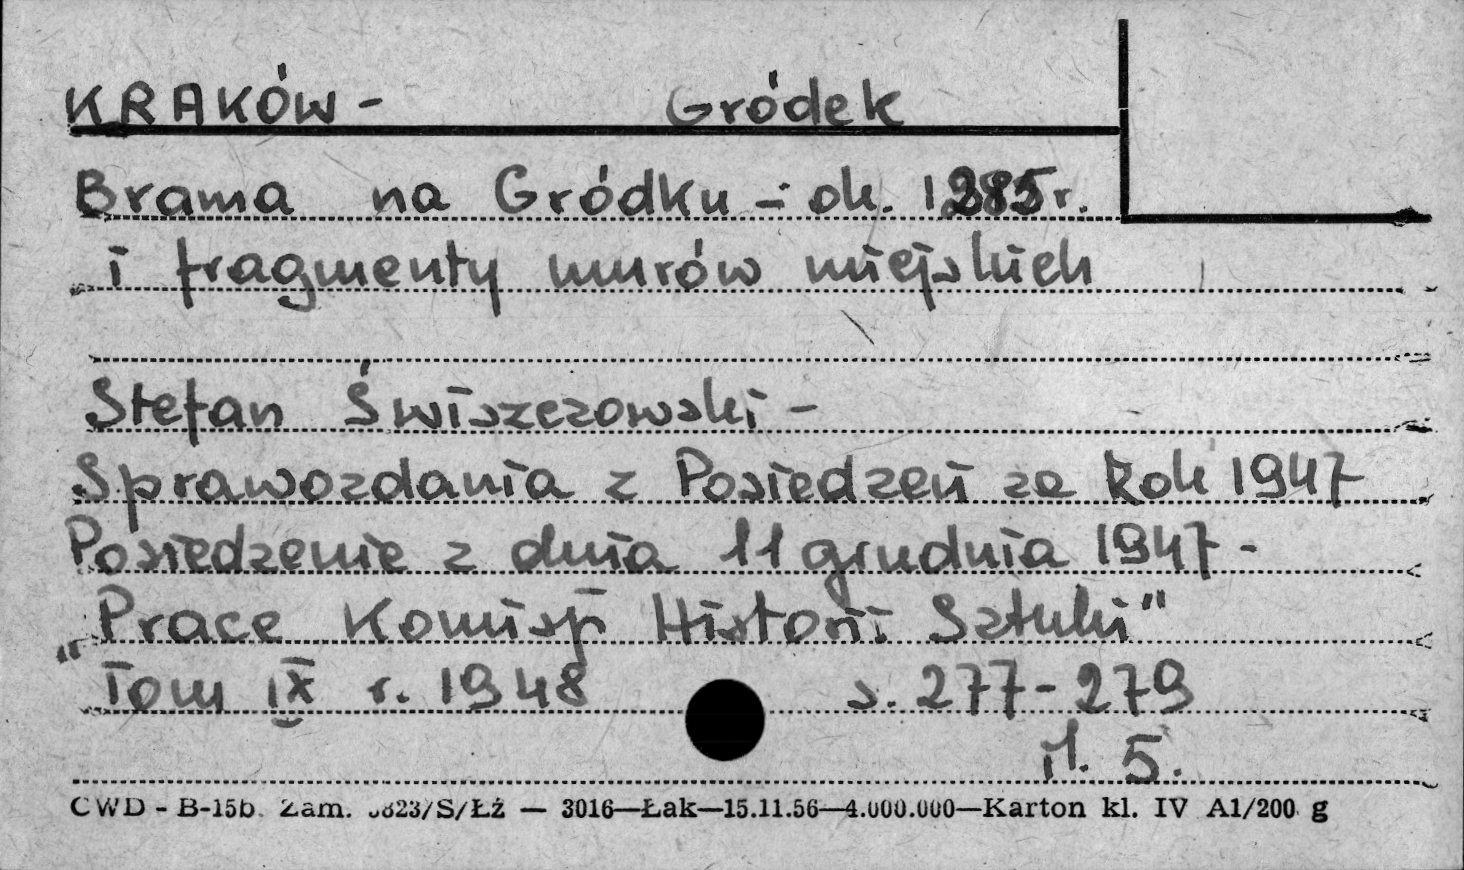 KRAKÓW - Gródek
Brama na Gródku - ok. 1285 r.
i fragmenty murów miejskich
Stefan Świszczowski -
Sprawozdania z Posiedzeń za Rok 1947
Posiedzenie z dnia 11 grudnia 1947 -
„Prace Komisji Historii Sztuki"
Tom IX r. 1948 s. 277-279
il. 5.
CWD - B-15b. Zam. 3823/S/Łż — 3016—Łak—15.11.56—4.000.000—Karton kl. IV A1/200 g